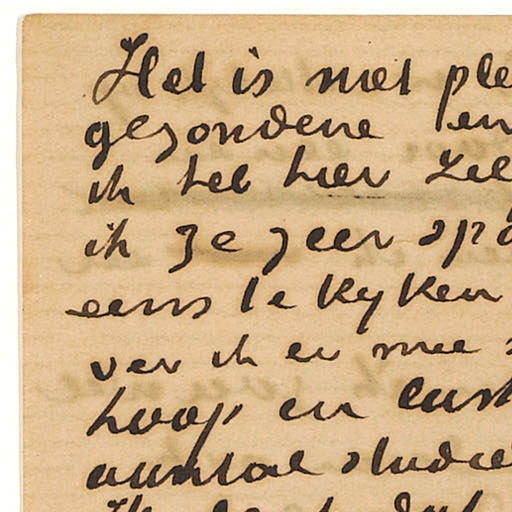 Het is met ple
gezondene en
ik heb hier zee
ik ze zeer spo
eens te kyken
ver ik er mee s
hoop en lust
aantal studie